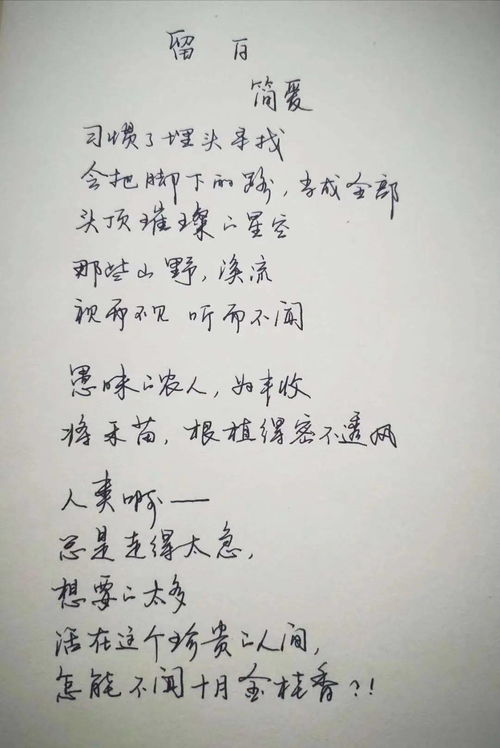 留白
简爱
习惯了埋头寻找
会把脚下的路，当成全部
头顶璀璨的星空
那些山野，溪流
视而不见 听而不闻
愚昧的农人，为丰收
将禾苗，根植得密不透风
人类啊——
总是走得太急，
想要的太多
活在这个珍贵的人间，
怎能不闻十月金桂香？！